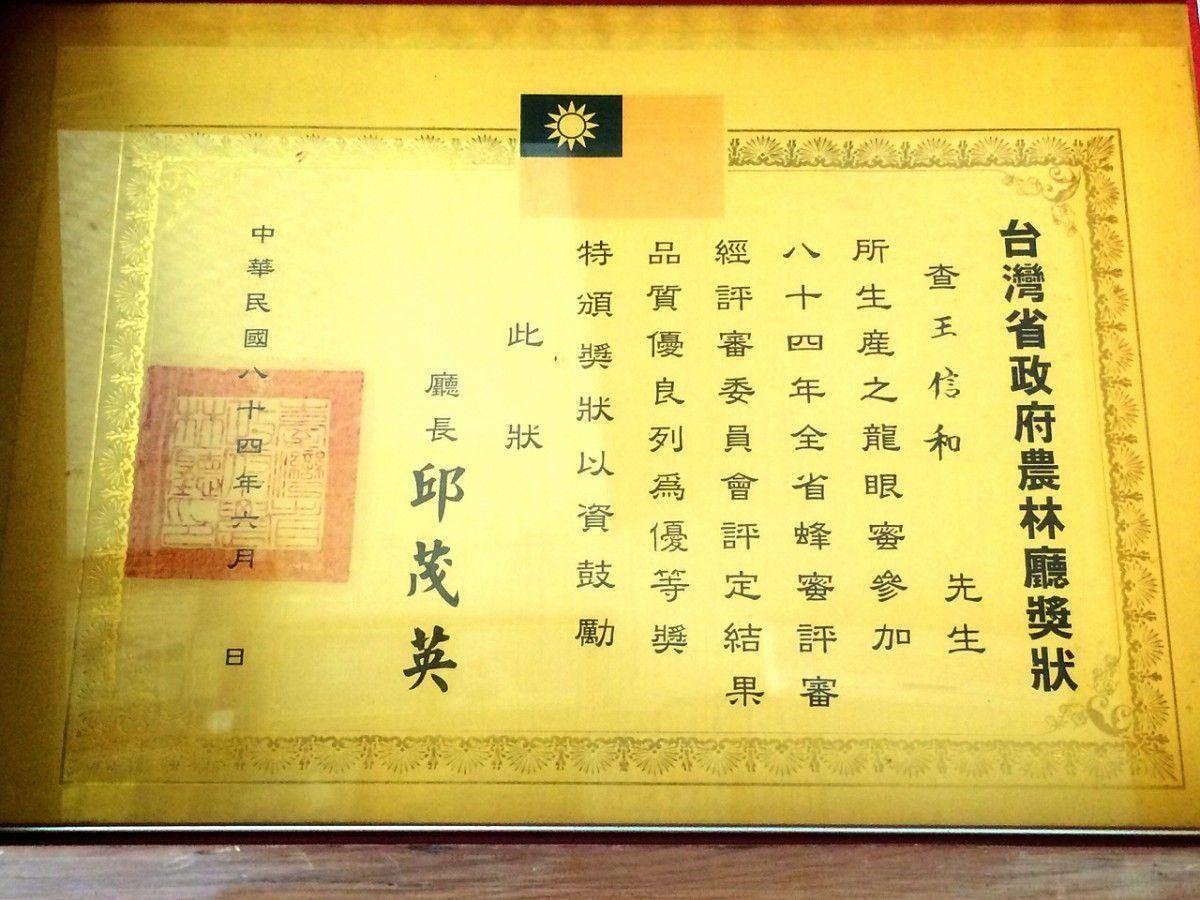 台灣省政府農林廳獎狀
查王信和 先生
所生產之龍眼蜜參加
八十四年全省蜂蜜評審
經評審委員會評定結果
品質優良列為優等獎
特頒獎狀以資鼓勵
此狀
廳長 邱茂英
中華民國八十四年六月 日